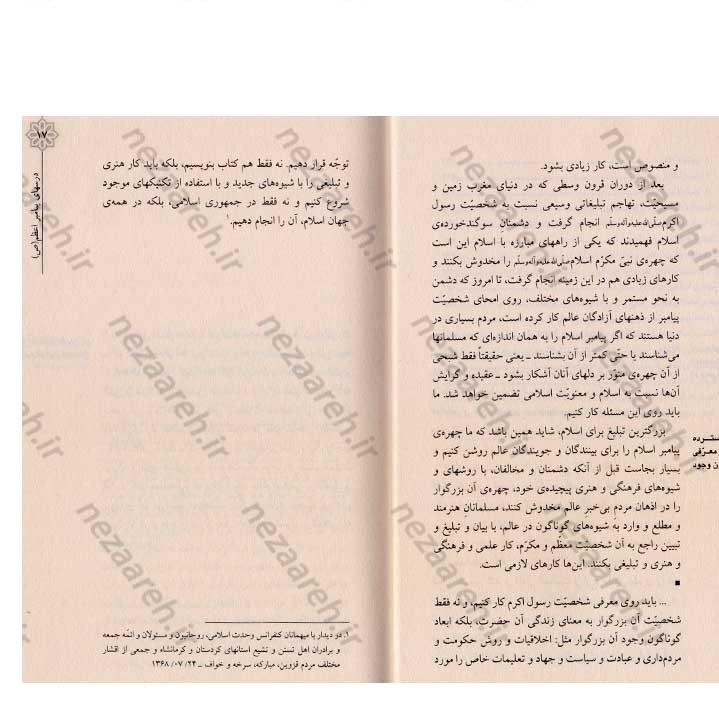 و منصوص است، کار زیادی بشود.
بعد از دوران قرون وسطی که در دنیای مغرب زمین و
مسیحیّت، تهاجم تبلیغاتی وسیعی نسبت به شخصیّت رسول
اکرم صلّی‌الله‌علیه‌وآله‌وسلّم انجام گرفت و دشمنان سوگندخورده‌ی
اسلام فهمیدند که یکی از راههای مبارزه با اسلام این است
که چهره‌ی نبیّ مکرّم اسلام صلّی‌الله‌علیه‌وآله‌وسلّم را مخدوش بکنند و
کارهای زیادی هم در این زمینه انجام گرفت، تا امروز که دشمن
به نحو مستمر و با شیوه‌های مختلف، روی امحای شخصیّت
پیامبر از ذهنهای آزادگان عالم کار کرده است، مردم بسیاری در
دنیا هستند که اگر پیامبر اسلام را به همان اندازه‌ای که مسلمانها
می‌شناسند یا حتّی کمتر از آن بشناسند ـ یعنی حقیقتاً فقط شبحی
از آن چهره‌ی منوّر بر دلهای آنان آشکار بشود ـ عقیده و گرایش
آن‌ها نسبت به اسلام و معنویّت اسلامی تضمین خواهد شد. ما
باید روی این مسئله کار کنیم.
بزرگترین تبلیغ برای اسلام، شاید همین باشد که ما چهره‌ی
پیامبر اسلام را برای بینندگان و جویندگان عالم روشن کنیم و
بسیار بجاست قبل از آنکه دشمنان و مخالفان، با روشهای و
شیوه‌های فرهنگی و هنری پیچیده‌ی خود، چهره‌ی آن بزرگوار
را در اذهان مردم بی‌خبر عالم مخدوش کنند، مسلمانان هنرمند
و مطلع و وارد به شیوه‌های گوناگون در عالم، با بیان و تبلیغ و
تبیین راجع به آن شخصیّت معظّم و مکرّم، کار علمی و فرهنگی
و هنری و تبلیغی بکنند. این‌ها کارهای لازمی است.
... باید روی معرفی شخصیّت رسول اکرم کار کنیم، و نه فقط
شخصیّت آن بزرگوار به معنای زندگی آن حضرت، بلکه ابعاد
گوناگون وجود آن بزرگوار مثل: اخلاقیات و روش حکومت و
مردم‌داری و عبادت و سیاست و جهاد و تعلیمات خاص را مورد
معرّفی
وجود
۱۷
درسهای پیامبر اعظم(ص)
توجّه قرار دهیم. نه فقط هم کتاب بنویسیم، بلکه باید کار هنری
و تبلیغی را با شیوه‌های جدید و با استفاده از تکنیکهای موجود
شروع کنیم و نه فقط در جمهوری اسلامی، بلکه در همه‌ی
جهان اسلام، آن را انجام دهیم.۱
۱. در دیدار با میهمانان کنفرانس وحدت اسلامی، روحانیون و مسئولان و ائمّه جمعه
و برادران اهل تسنن و تشیع استانهای کردستان و کرمانشاه و جمعی از اقشار
مختلف مردم قزوین، مبارکه، سرخه و خواف ـ ۲۴/ ۰۷/ ۱۳۶۸
nezaareh.ir